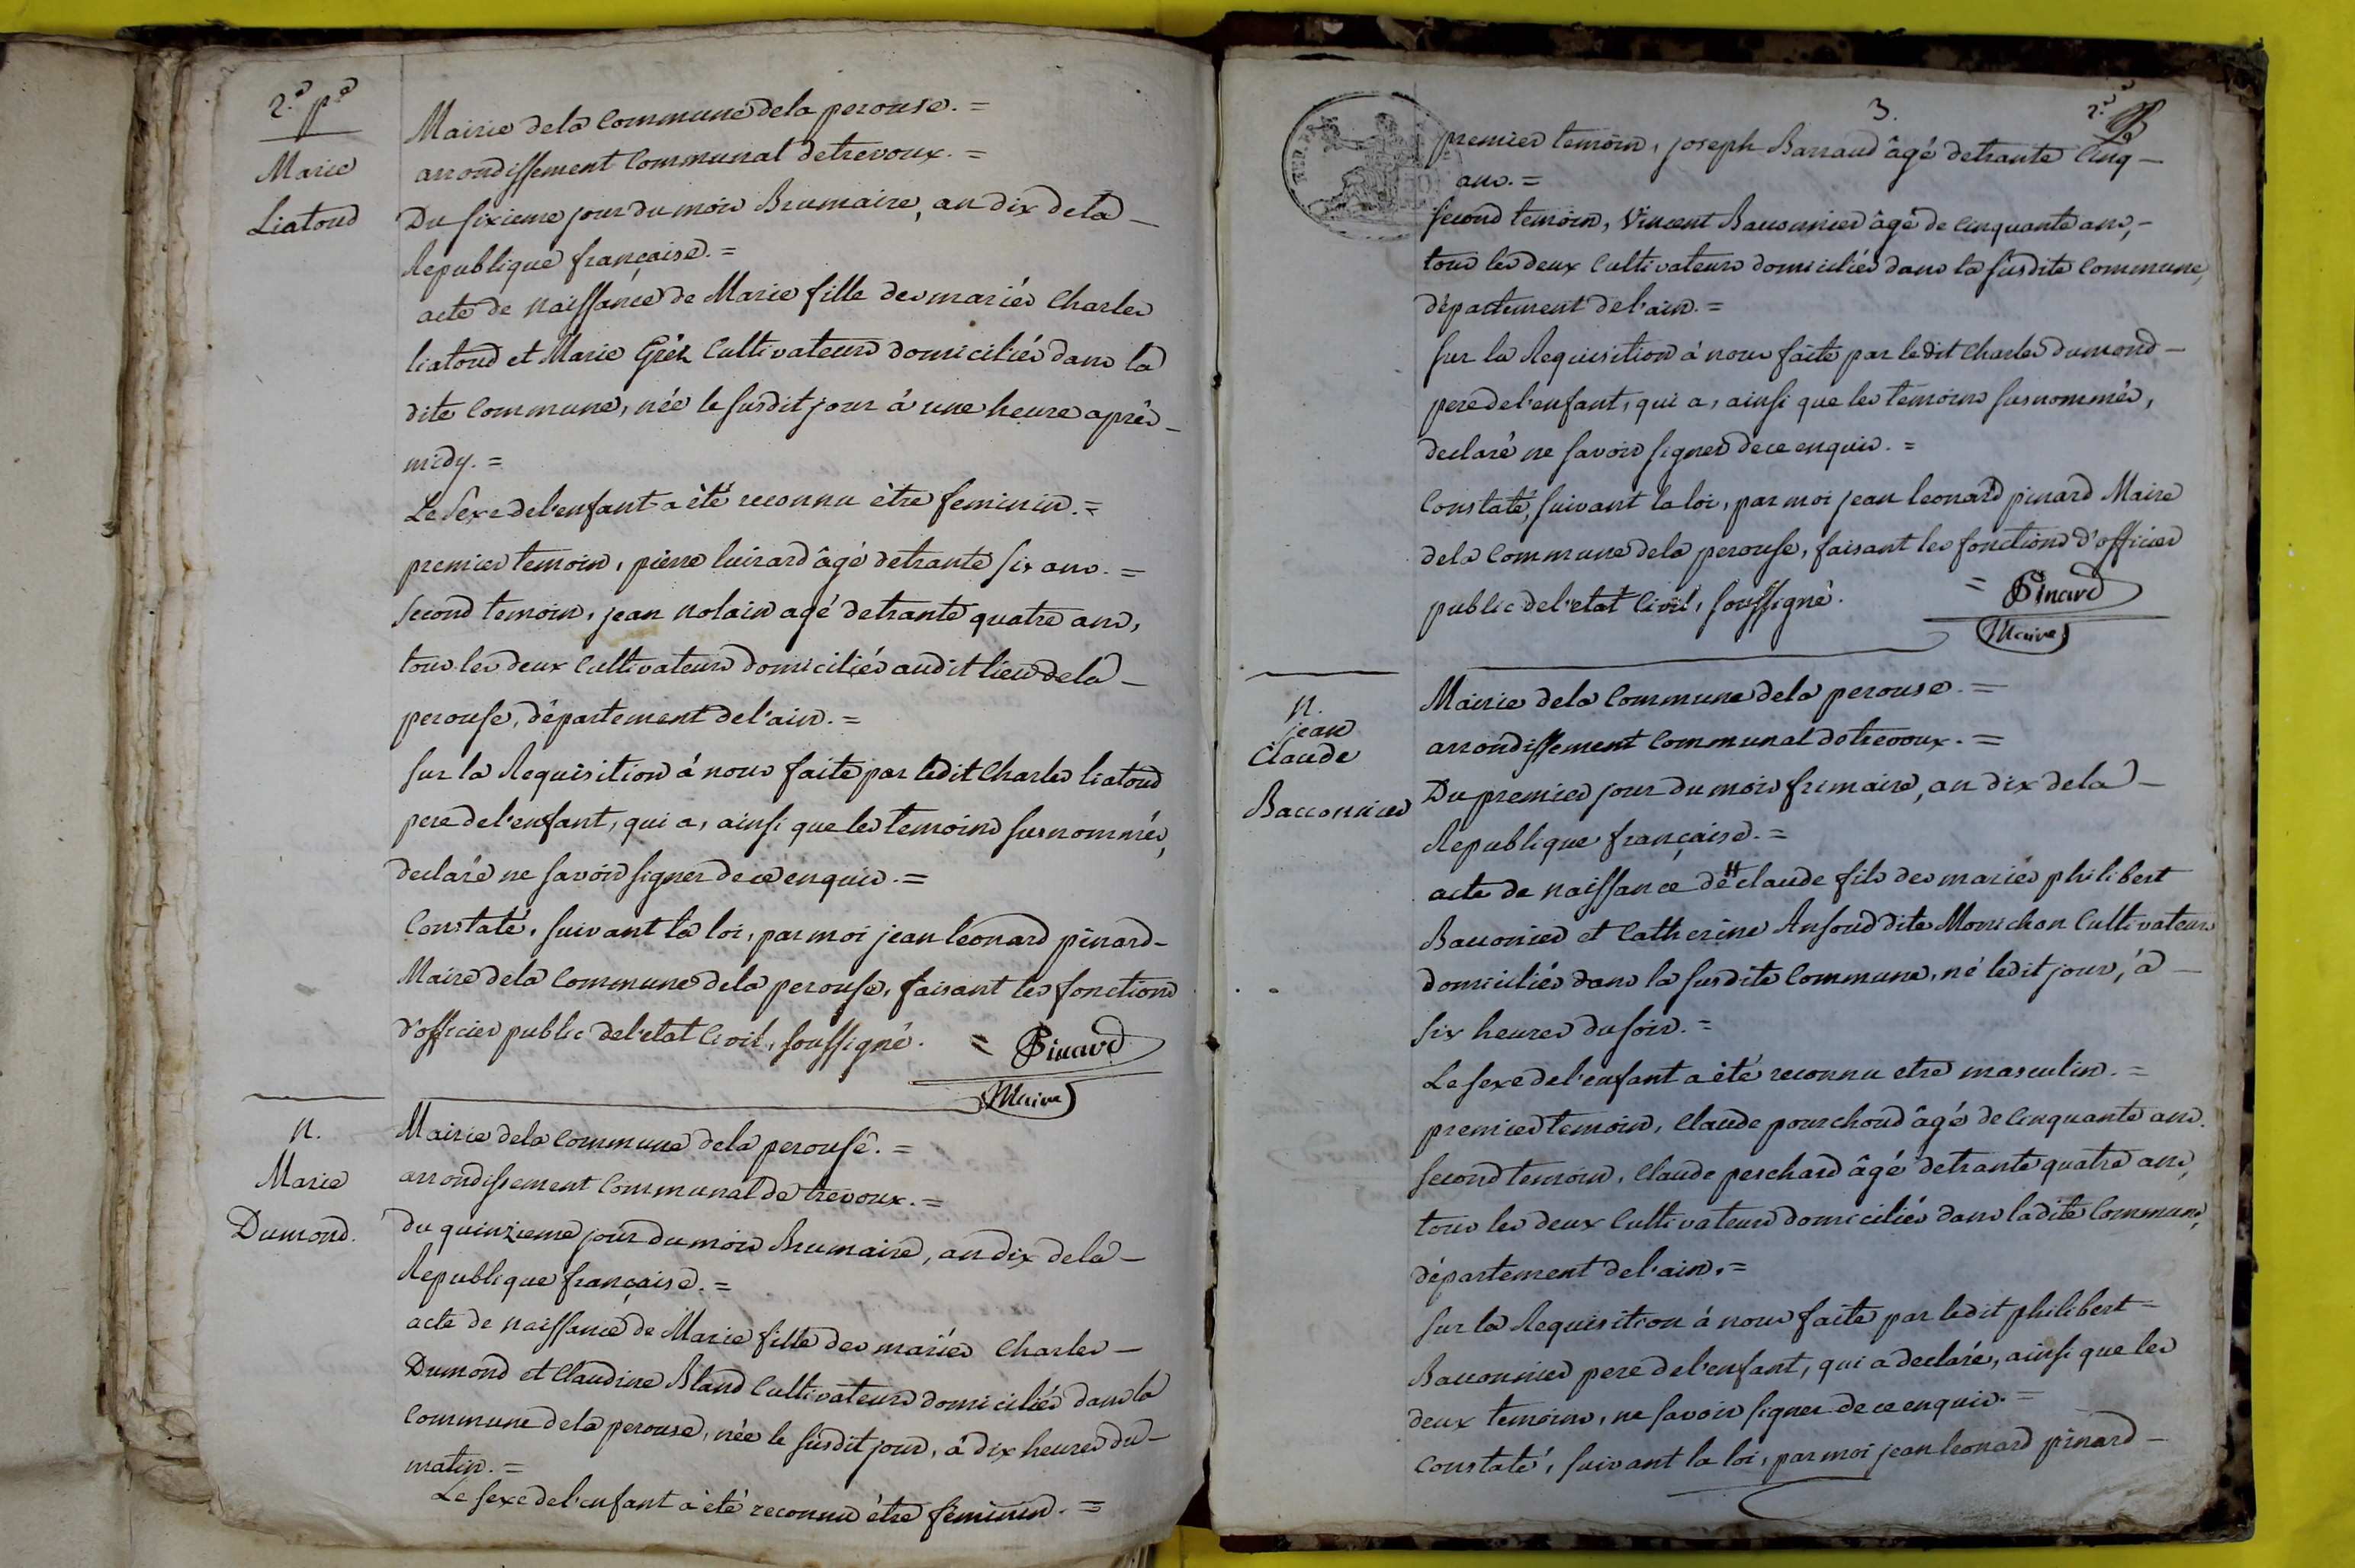 2.e p.e
Marie
Liatoud
Mairie dela Commune dela perouse. =
arrondissement Communal detrevoux. =
Du sixieme jour du mois Brumaire, an dix dela –
Republique française. =
acte de naissance de Marie fille des mariés Charles
liatoud et Marie Grés Cultivateurs domiciliés dans la
dite Commune, née le susdit jour à une heure après –
midy. =
Le Sexe del'enfant a été reconnu être feminin. =
premier temoin, pierre luirard âgé detrante six ans. =
Second temoin, jean nolain agé detrante quatre ans,
tous les deux Cultivateurs domiciliés audit lieu dela –
perouse, département del'ain. =
Sur la Requisition à nous faite par ledit Charles liatoud
pere del'enfant, qui a, ainsi que les temoins susnommés,
declaré ne savoir signer de ce enquis. =
Constaté, suivant la loi, par moi jean léonard pinard –
Maire dela Commune dela perouse, faisant les fonctions
d'officier public del'etat Civil, soussigné. = Pinard
Maire
n.
Marie
Dumond.
Mairie dela Commune dela perouse. =
arrondissement Communal de trevoux. =
du quinzieme jour du mois Brumaire, an dix dela –
Republique française. =
acte de naissance de Marie fille des mariés Charles –
Dumond et Claudine Bland Cultivateurs domiciliés dans la
Commune dela perouse, née le susdit jour, à dix heures du –
matin. =
Le sexe del'enfant a été reconnu être feminin. =
3.
2.e
premier temoin, joseph Barraud âgé detrante Cinq –
ans. =
Second temoin, Vincent Bauonnier âgé de Cinquante ans, –
tous les deux Cultivateurs domiciliés dans la susdite Commune,
département del'ain. =
Sur la Requisition à nous faite par ledit Charles dumond –
pere del'enfant, qui a, ainsi que les temoins susnommés,
declaré ne savoir signer de ce enquis. =
Constaté, suivant la loi, par moi jean leonard pinard Maire
dela Commune dela perouse, faisant les fonctions d'officier
public del'etat Civil, soussigné. = Pinard
Maire
n.
jean
Claude
Bacconnier
Mairie dela Commune dela perouse. =
arrondissement Communal detrevoux. =
Du premier jour du mois frimaire, an dix dela –
Republique française. =
acte de naissance de # claude fils des mariés philibert
Bauonier et Catherine Ansoud dite Monichon Cultivateurs
domiciliés dans la susdite Commune, né ledit jour, à –
six heures du soir. =
Le sexe del'enfant a été reconnu etre masculin. =
premier temoin, Claude pourchoud âgé de Cinquante ans.
Second temoin, Claude perchard âgé detrante quatre ans,
tous les deux Cultivateurs domiciliés dans ladite Commune,
département del'ain. =
Sur la Requisition à nous faite par ledit philibert –
Bauonnier pere del'enfant, qui a declaré, ainsi que les
deux temoins, ne savoir signer de ce enquis. =
Constaté, suivant la loi, par moi jean leonard pinard –